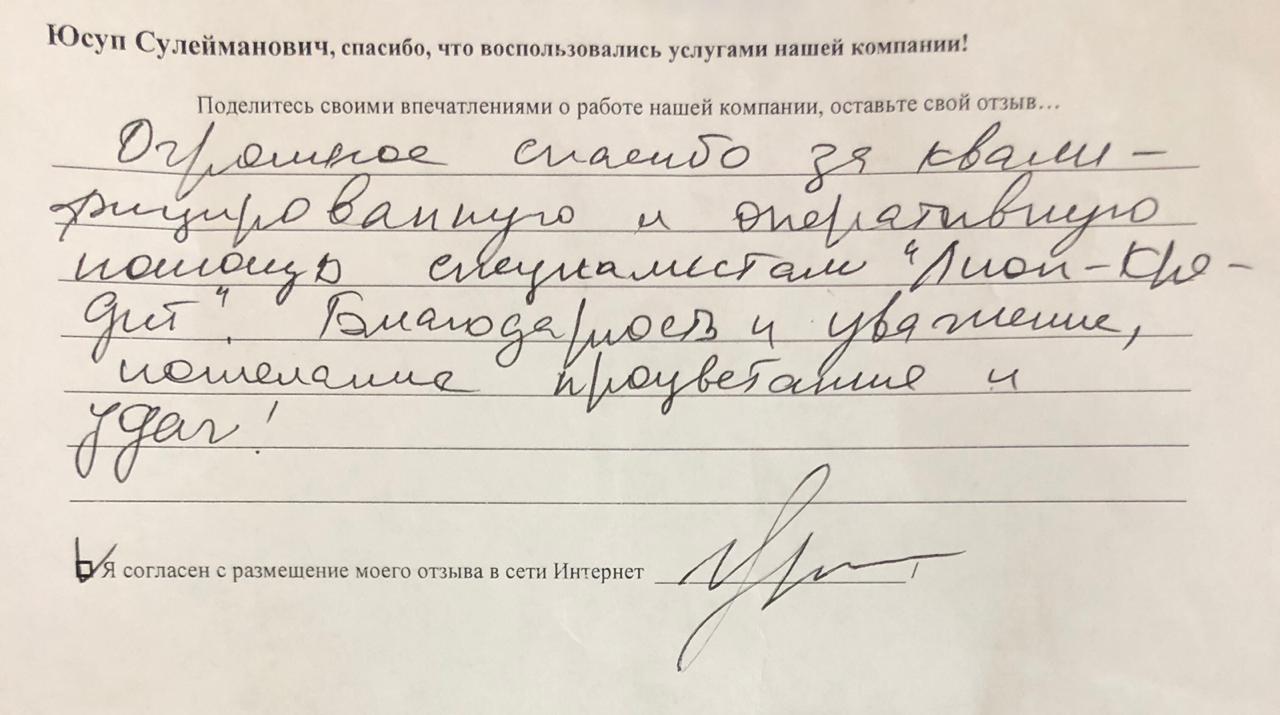 Юсуп Сулейманович, спасибо, что воспользовались услугами нашей компании!
Поделитесь своими впечатлениями о работе нашей компании, оставьте свой отзыв…
Огромное спасибо за квали-
фицированную и оперативную
помощь специалистам "Лион-Кре-
дит". Благодарность и уважение,
пожелание процветания и
удач!
Я согласен с размещение моего отзыва в сети Интернет